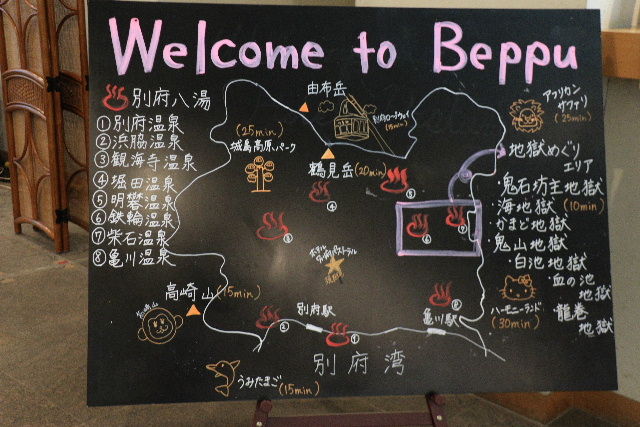 Welcome to Beppu
別府八湯
①別府温泉
②浜脇温泉
③観海寺温泉
④堀田温泉
⑤明礬温泉
⑥鉄輪温泉
⑦柴石温泉
⑧亀川温泉
由布岳
別府ロープウェイ
(15min)
(25min.)
城島高原パーク
鶴見岳(20min)
アフリカン
サファリ
(25min)
地獄めぐり
エリア
・鬼石坊主地獄
・海地獄(10min)
・かまど地獄
鬼山地獄
・白池地獄
・血の池
地獄
龍巻
地獄
ハーモニーランド
(30min)
高崎山(15min)
④
⑤
③
⑥
⑦
⑧
②
①
別府駅
亀川駅
別府湾
うみたまご(15min)